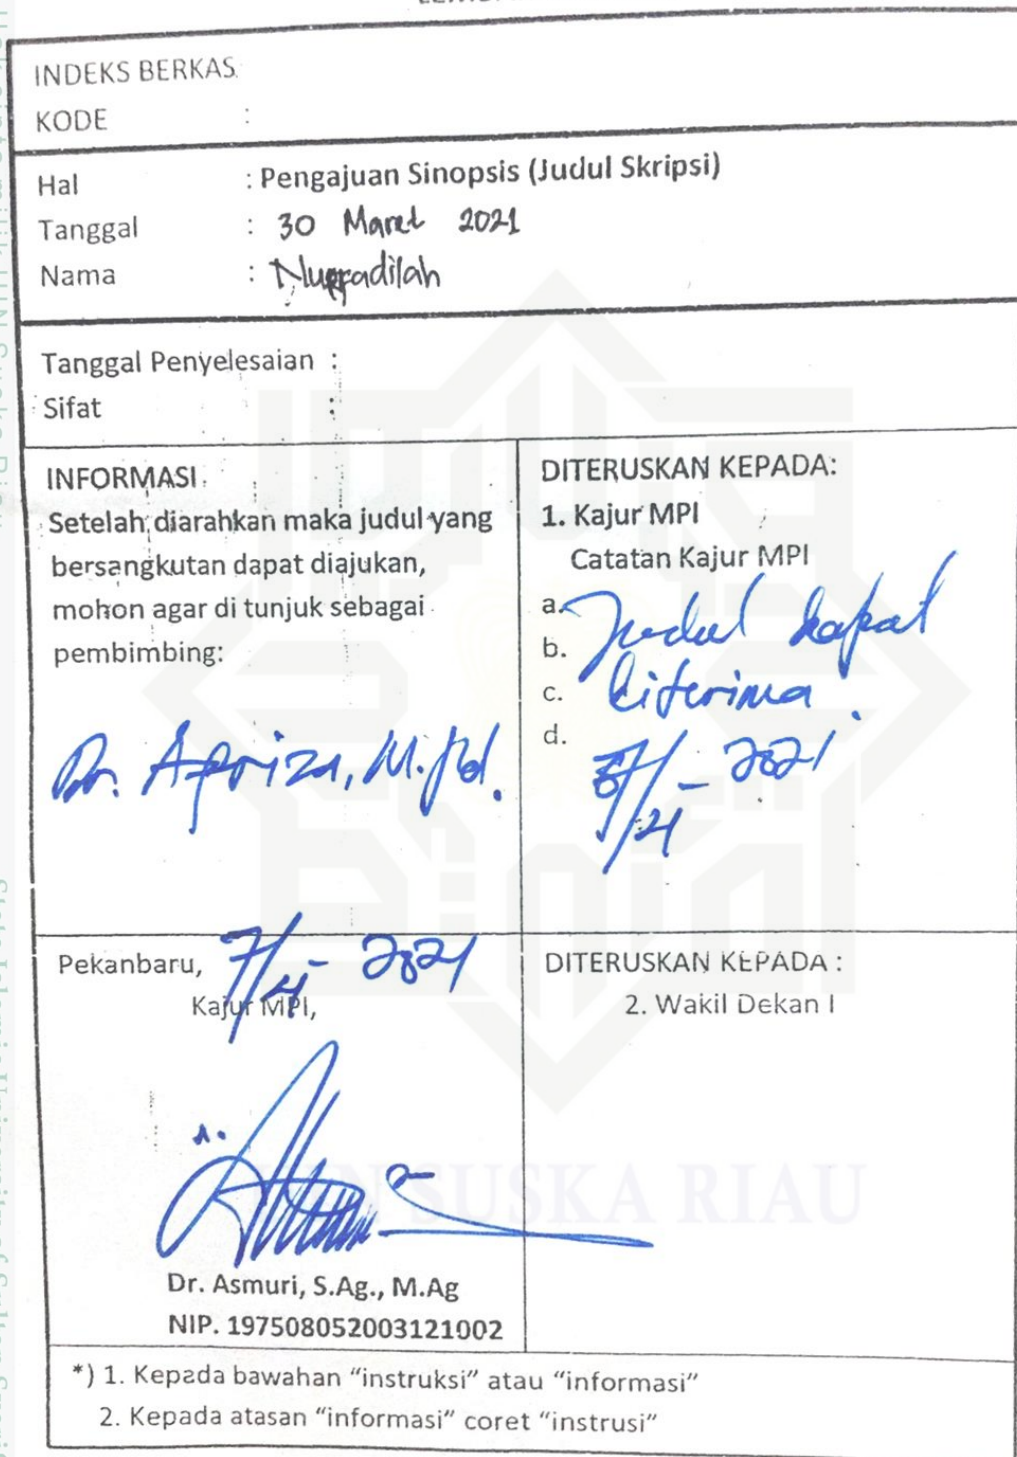 INDEKS BERKAS:
KODE :
Hal : Pengajuan Sinopsis (Judul Skripsi)
Tanggal : 30 Maret 2021
Nama : Nurfadilah
Tanggal Penyelesaian :
Sifat :
INFORMASI
Setelah diarahkan maka judul yang
bersangkutan dapat diajukan,
mohon agar di tunjuk sebagai
pembimbing:
Dr. Apriza, M.Pd.
DITERUSKAN KEPADA:
1. Kajur MPI
Catatan Kajur MPI
a. Judul dapat
b.
c. diterima.
d.
/4 - 2021
Pekanbaru, 7/4 - 2021
Kajur MPI,
Dr. Asmuri, S.Ag., M.Ag
NIP. 197508052003121002
DITERUSKAN KEPADA :
2. Wakil Dekan I
UIN SUSKA RIAU
*) 1. Kepada bawahan “instruksi” atau “informasi”
2. Kepada atasan “informasi” coret “instrusi”